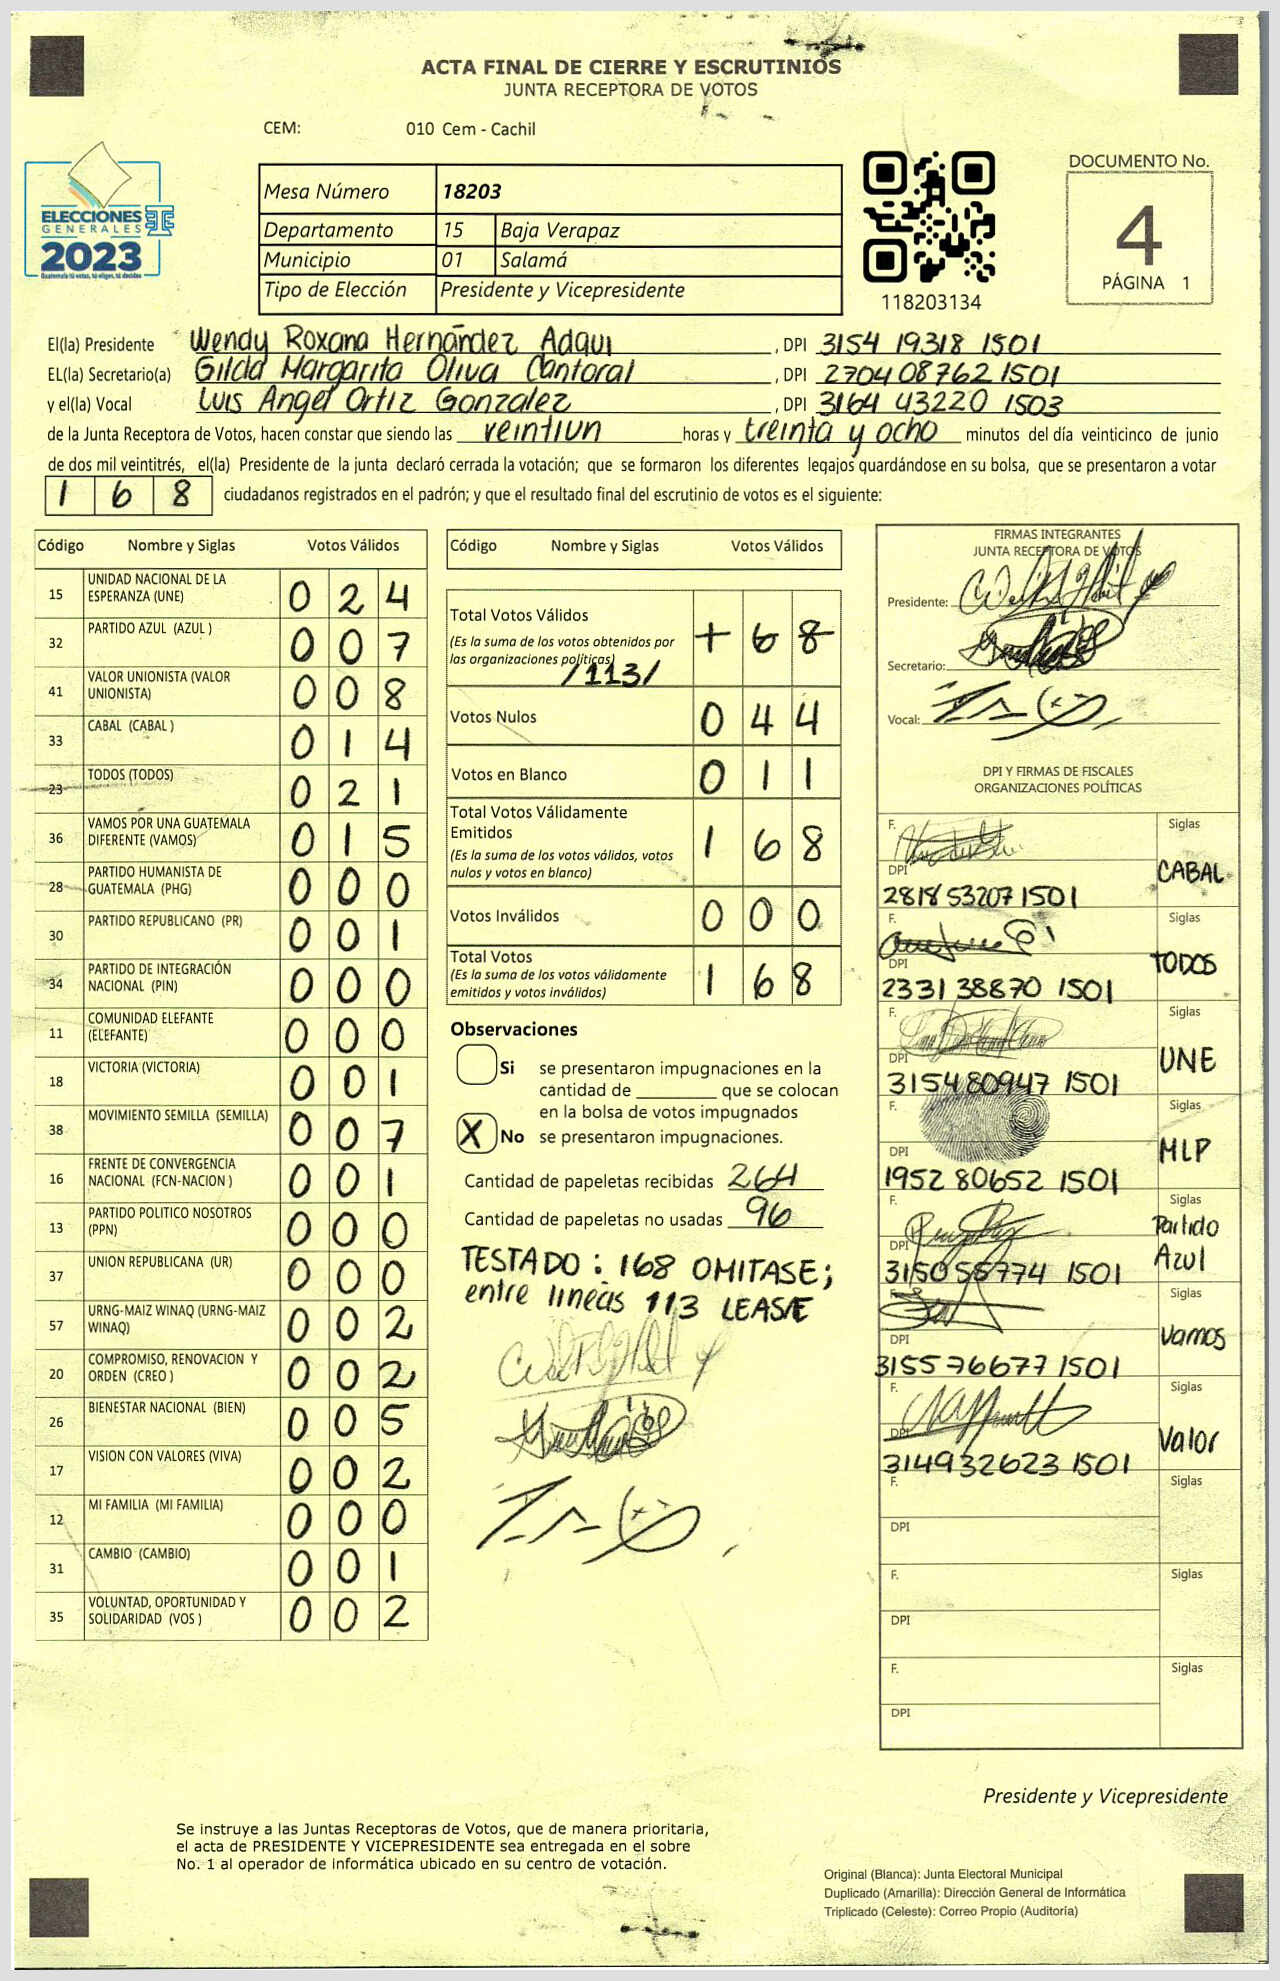 ACTA FINAL DE CIERRE Y ESCRUTINIOS
JUNTA RECEPTORA DE VOTOS
CEM: 010 Cem - Cachil
ELECCIONES
GENERALES
2023
Guatemala tú votas, tú eliges, tú decides
Mesa Número 18203
Departamento 15 Baja Verapaz
Municipio 01 Salamá
Tipo de Elección Presidente y Vicepresidente
118203134
DOCUMENTO No.
4
PÁGINA 1
El(la) Presidente Wendy Roxana Hernández Adqui, DPI 3154 19318 1501
EL(la) Secretario(a) Gilda Margarita Oliva Cantoral, DPI 2704 08762 1501
y el(la) Vocal Luis Angel Ortiz Gonzalez, DPI 3164 43220 1503
de la Junta Receptora de Votos, hacen constar que siendo las veintiun horas y treinta y ocho minutos del día veinticinco de junio
de dos mil veintitrés, el(la) Presidente de la junta declaró cerrada la votación; que se formaron los diferentes legajos guardándose en su bolsa, que se presentaron a votar
1 6 8 ciudadanos registrados en el padrón; y que el resultado final del escrutinio de votos es el siguiente:
Código Nombre y Siglas Votos Válidos
15 UNIDAD NACIONAL DE LA ESPERANZA (UNE) 0 2 4
32 PARTIDO AZUL (AZUL ) 0 0 7
41 VALOR UNIONISTA (VALOR UNIONISTA) 0 0 8
33 CABAL (CABAL ) 0 1 4
23 TODOS (TODOS) 0 2 1
36 VAMOS POR UNA GUATEMALA DIFERENTE (VAMOS) 0 1 5
28 PARTIDO HUMANISTA DE GUATEMALA (PHG) 0 0 0
30 PARTIDO REPUBLICANO (PR) 0 0 1
34 PARTIDO DE INTEGRACIÓN NACIONAL (PIN) 0 0 0
11 COMUNIDAD ELEFANTE (ELEFANTE) 0 0 0
18 VICTORIA (VICTORIA) 0 0 1
38 MOVIMIENTO SEMILLA (SEMILLA) 0 0 7
16 FRENTE DE CONVERGENCIA NACIONAL (FCN-NACION ) 0 0 1
13 PARTIDO POLITICO NOSOTROS (PPN) 0 0 0
37 UNION REPUBLICANA (UR) 0 0 0
57 URNG-MAIZ WINAQ (URNG-MAIZ WINAQ) 0 0 2
20 COMPROMISO, RENOVACION Y ORDEN (CREO ) 0 0 2
26 BIENESTAR NACIONAL (BIEN) 0 0 5
17 VISION CON VALORES (VIVA) 0 0 2
12 MI FAMILIA (MI FAMILIA) 0 0 0
31 CAMBIO (CAMBIO) 0 0 1
35 VOLUNTAD, OPORTUNIDAD Y SOLIDARIDAD (VOS ) 0 0 2
Código Nombre y Siglas Votos Válidos
Total Votos Válidos 1 6 8
(Es la suma de los votos obtenidos por
las organizaciones políticas)
/113/
Votos Nulos 0 4 4
Votos en Blanco 0 1 1
Total Votos Válidamente
Emitidos 1 6 8
(Es la suma de los votos válidos, votos
nulos y votos en blanco)
Votos Inválidos 0 0 0
Total Votos 1 6 8
(Es la suma de los votos válidamente
emitidos y votos inválidos)
Observaciones
Si se presentaron impugnaciones en la
cantidad de ________ que se colocan
en la bolsa de votos impugnados
X No se presentaron impugnaciones.
Cantidad de papeletas recibidas 264
Cantidad de papeletas no usadas 96
TESTADO: 168 OMITASE;
entre lineas 113 LEASE
FIRMAS INTEGRANTES
JUNTA RECEPTORA DE VOTOS
Presidente:
Secretario:
Vocal:
DPI Y FIRMAS DE FISCALES
ORGANIZACIONES POLÍTICAS
F. Siglas
CABAL
DPI
2818 53207 1501
F. Siglas
TODOS
DPI
2331 38870 1501
F. Siglas
UNE
DPI
3154 80947 1501
F. Siglas
MLP
DPI
1952 80652 1501
F. Siglas
Partido
Azul
DPI
3150 55774 1501
F. Siglas
Vamos
DPI
3155 76677 1501
F. Siglas
Valor
DPI
3149 32623 1501
F. Siglas
DPI
F. Siglas
DPI
F. Siglas
DPI
Presidente y Vicepresidente
Se instruye a las Juntas Receptoras de Votos, que de manera prioritaria,
el acta de PRESIDENTE Y VICEPRESIDENTE sea entregada en el sobre
No. 1 al operador de informática ubicado en su centro de votación.
Original (Blanca): Junta Electoral Municipal
Duplicado (Amarilla): Dirección General de Informática
Triplicado (Celeste): Correo Propio (Auditoría)